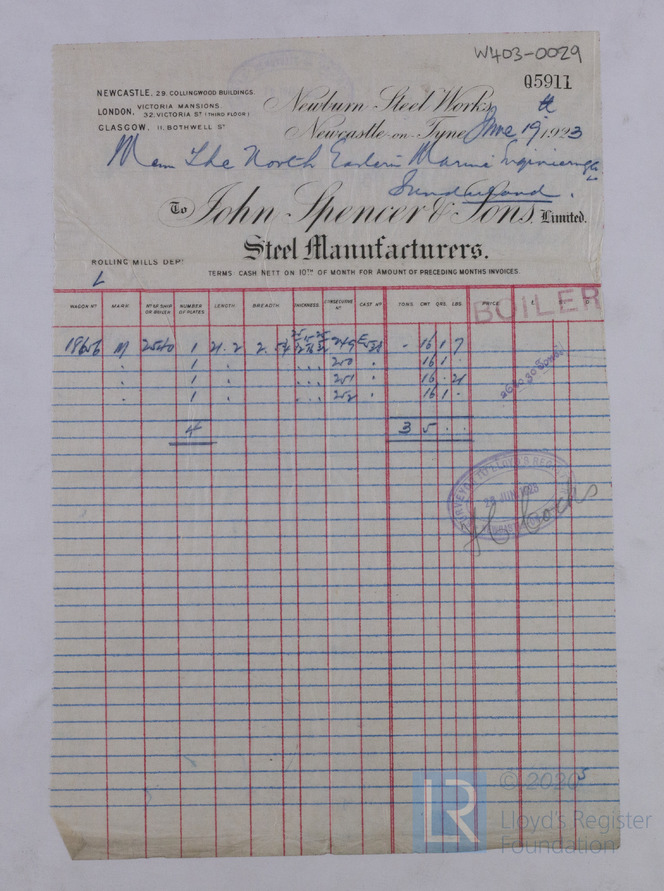 W403-0029
05911
NEWCASTLE, 29. COLLINGWOOD BUILDINGS.
LONDON, VICTORIA MANSIONS.
32, VICTORIA ST (THIRD FLOOR)
GLASGOW, 11. BOTHWELL ST
Newburn Steel Works,
Newcastle-on-Tyne June 19th 1923
The North Eastern Marine Engineering Co
Sunderland.
To John Spencer & Sons, Limited.
Steel Manufacturers.
ROLLING MILLS DEPT
L
TERMS: CASH NETT ON 10TH OF MONTH FOR AMOUNT OF PRECEDING MONTHS INVOICES.
WAGON No MARK No OF SHIP OR BOILER NUMBER OF PLATES LENGTH BREADTH THICKNESS CONSECUTIVE No CAST No TONS CWT QRS. LBS. PRICE £
BOILER
18656 M 2540 1 21. 2 2. 249 - 16 1 7
" " 1 " 250 " 16 1 "
" " 1 " 251 " 16 " 21
" " 1 " 252 " 16 1 "
4 3 5 " "
SURVEYOR TO LLOYD'S REGISTER
JUN 1923
© 2020
LR
Lloyd's Register
Foundation